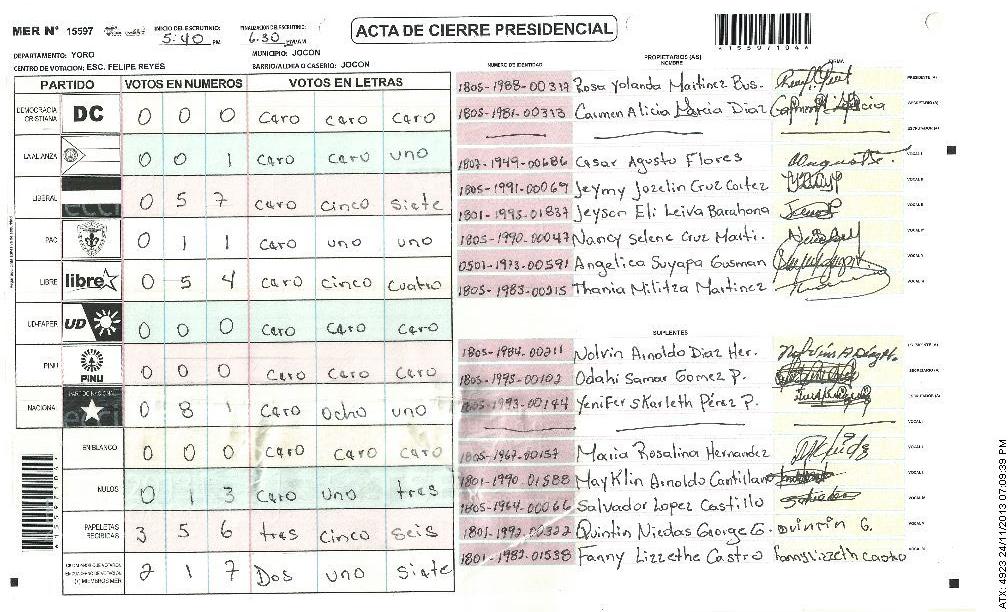 ACTA DE CIERRE PRESIDENCIAL
MER Nº 15597
INICIO DEL ESCRUTINIO: 5:40 PM
FINALIZACION DEL ESCRUTINIO: 6:30
DEPARTAMENTO: YORO
MUNICIPIO: JOCON
CENTRO DE VOTACION: ESC. FELIPE REYES
BARRIO/ALDEA O CASERIO: JOCON
PARTIDO VOTOS EN NUMEROS VOTOS EN LETRAS
DEMOCRACIA CRISTIANA DC 0 0 0 caro caro caro
LA ALIANZA 0 0 1 caro caro uno
LIBERAL 0 5 7 caro cinco siete
PAC 0 1 1 caro uno uno
LIBRE libre 0 5 4 caro cinco cuatro
UD-FAPER UD 0 0 0 caro caro caro
PINU PINU 0 0 0 caro caro caro
NACIONA PARTIDO NACIONAL 0 8 1 caro ocho uno
EN BLANCO 0 0 0 caro caro caro
NULOS 0 1 3 caro uno tres
PAPELETAS RECIBIDAS 3 5 6 tres cinco seis
2 1 7 Dos uno siete
NUMERO DE IDENTIDAD
PROPIETARIOS (AS)
NOMBRE
FIRMA
1805-1988-00317 Rosa Yolanda Martinez Bus. PRESIDENTE (A)
1805-1981-00313 Carmen Alicia Murcia Diaz SECRETARIO (A)
ESCRUTADOR (A)
1807-1949-00686 Cesar Agusto Flores VOCAL I
1805-1991-00069 Jeymy Jozelin Cruz Cortez
1801-1995-01837 Jeyson Eli Leiva Barahona
1805-1990-00047 Nancy Selene Cruz Marti.
0501-1973-00591 Angelica Suyapa Gusman
1805-1983-00215 Thania Militza Martinez
SUPLENTES
1805-1984-00211 Nolvin Arnoldo Diaz Her.
1805-1995-00102 Odahi Samar Gomez P. SECRETARIO (A)
1805-1993-00144 Yenifer Skarleth Pérez P.
1805-1967-00157 Maria Rosalina Hernandez
1801-1990-01588 Mayklin Arnoldo Cantillano
1805-1964-00066 Salvador Lopez Castillo
1801-1992-00322 Quintin Niedas George G. Quintin G.
1801-1982-01538 Fanny Lizzethe Castro Fanny Lizzeth Castro
ATX: 4923 24/11/2013 07:09:39 PM